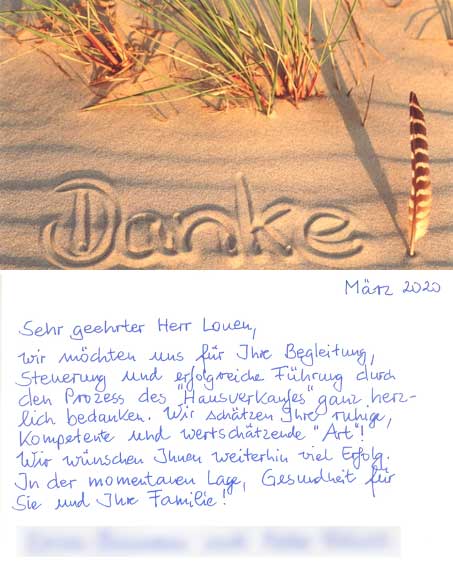 Danke
März 2020
Sehr geehrter Herr Louen,
wir möchten uns für Ihre Begleitung,
Steuerung und erfolgreiche Führung durch
den Prozess des "Hausverkaufes" ganz herz-
lich bedanken. Wir schätzen Ihre ruhige,
kompetente und wertschätzende "Art"!
Wir wünschen Ihnen weiterhin viel Erfolg.
In der momentanen Lage, Gesundheit für
Sie und Ihre Familie!